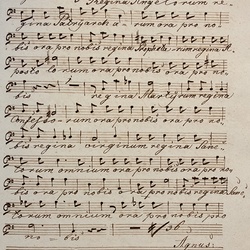 Regina Angelorum re-
gina Patriarchau-rum ora pro no-
bis ora pro nobis regina Aposto-lorum regina A-
posto lorum ora pro nobis ora pro no-
bis regina Martyrum regina
Confesso-rum ora pro nobis ora pro no-
bis regina virginum regina Sanc-
torum omnium ora pro nobis ora pro no-
bis ora pro nobis o-ra pro nobis regina Sanc-
torum omnium ora pro nobis ora pro
no-bis
Agnus: